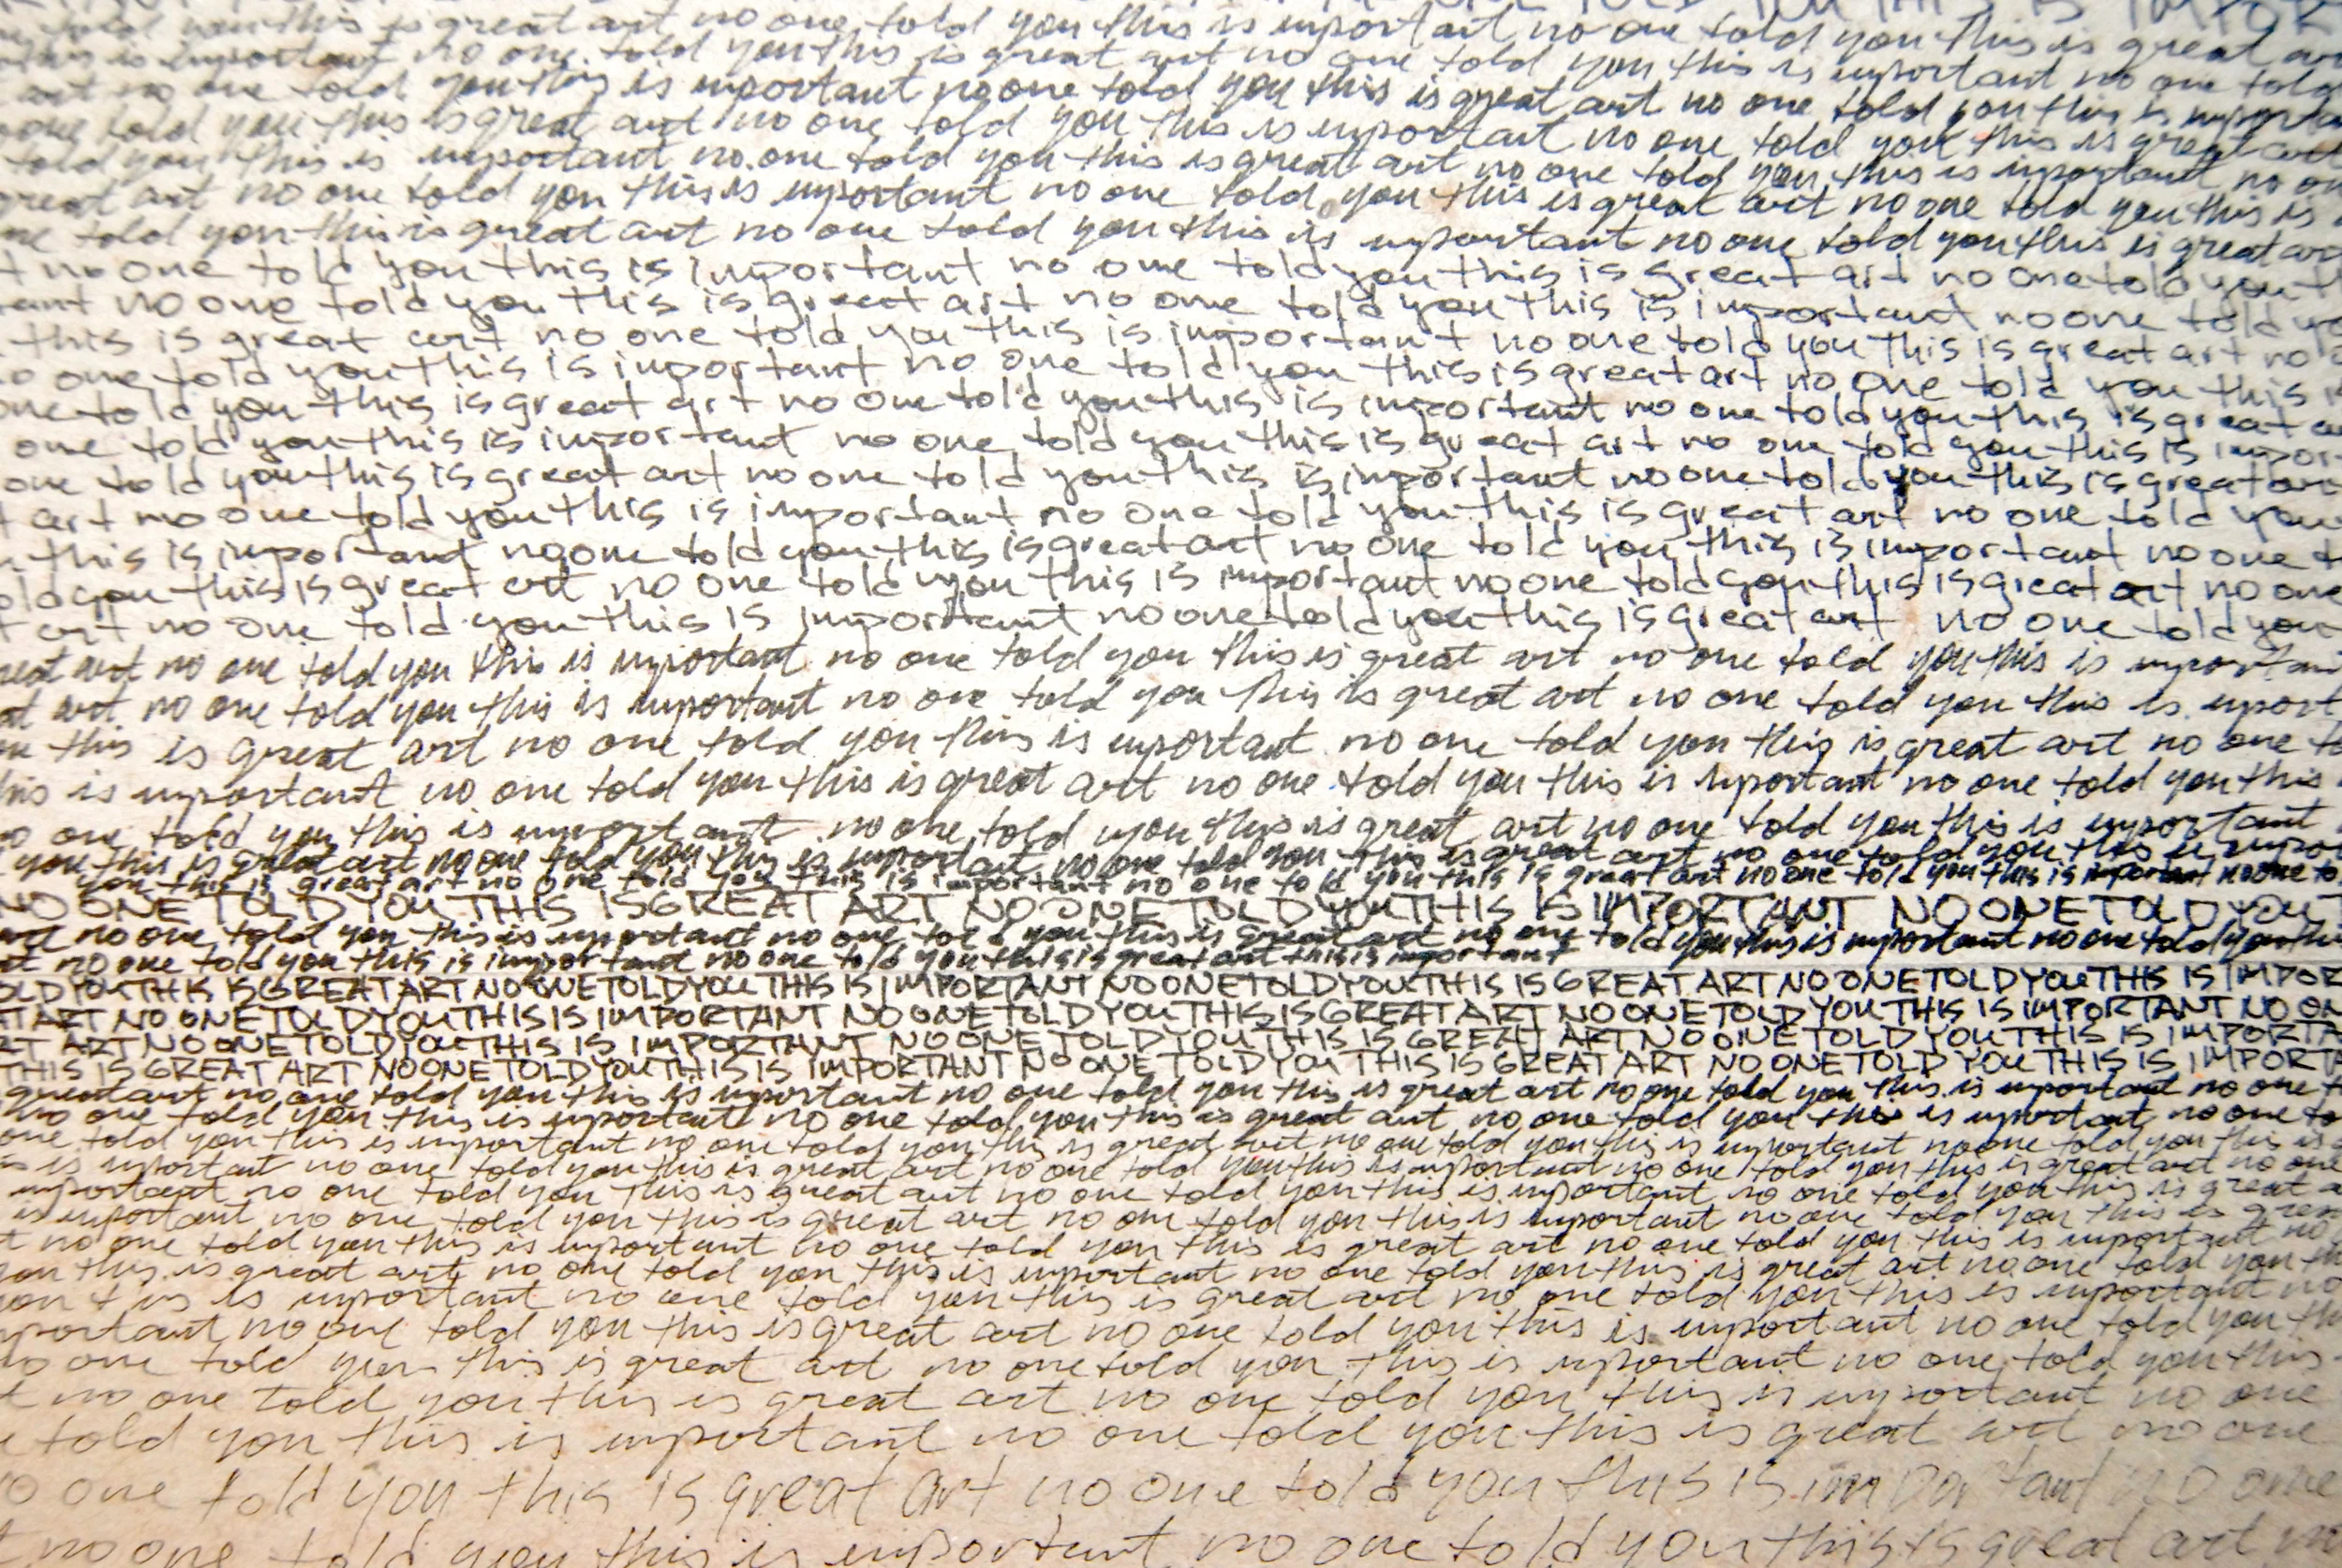 TOLD YOU THIS IS
told you this is great art no one told you this is important no one told you this is great art
this is important no one told you this is great art no one told you this is important no one told
art no one told you this is important no one told you this is great art no one told you this is important
one told you this is great art no one told you this is important no one told you this is great art
told you this is important no one told you this is great art no one told you this is important no one
great art no one told you this is important no one told you this is great art no one told you this is
told you this is great art no one told you this is important no one told you this is great art
no one told you this is important no one told you this is great art no one told you
no one told you this is great art no one told you this is important no one told
this is great art no one told you this is important no one told you this is great art no
one told you this is important no one told you this is great art no one told you this
one told you this is great art no one told you this is important no one told you this is great
one told you this is important no one told you this is great art no one told you this is
one told you this is great art no one told you this is important no one told you this is great art
art no one told you this is important no one told you this is great art no one told you
this is important no one told you this is great art no one told you this is important no one
you this is great art no one told you this is important no one told you this is great art no one
art no one told you this is important no one told you this is great art no one told you
art no one told you this is important no one told you this is great art no one told you this is important
art no one told you this is important no one told you this is great art no one told you this is
this is great art no one told you this is important no one told you this is great art no one
this is important no one told you this is great art no one told you this is important no one told you this
no one told you this is important no one told you this is great art no one told you this is important
you this is great art no one told you this is important no one told you this is great art no one told you this is
you this is great art no one told you this is important no one told you this is great art no one told you this is important no one
NO ONE TOLD YOU THIS IS GREAT ART NO ONE TOLD YOU THIS IS IMPORTANT NO ONE TOLD YOU
no one told you this is important no one told you this is great art no one told you this is important no one told you this
no one told you this is important no one told you this is great art this is important
YOU THIS IS GREAT ART NO ONE TOLD YOU THIS IS IMPORTANT NO ONE TOLD YOU THIS IS GREAT ART NO ONE TOLD YOU THIS IS
ART NO ONE TOLD YOU THIS IS IMPORTANT NO ONE TOLD YOU THIS IS GREAT ART NO ONE TOLD YOU THIS IS IMPORTANT NO
ART NO ONE TOLD YOU THIS IS IMPORTANT NO ONE TOLD YOU THIS IS GREAT ART NO ONE TOLD YOU THIS IS
THIS IS GREAT ART NO ONE TOLD YOU THIS IS IMPORTANT NO ONE TOLD YOU THIS IS GREAT ART NO ONE TOLD YOU THIS IS
great art no one told you this is important no one told you this is great art no one told you this is important no one
no one told you this is important no one told you this is great art no one told you this is important no one
one told you this is important no one told you this is great art no one told you this is important no one told you this is
is important no one told you this is great art no one told you this is important no one told you this is great art no one
important no one told you this is great art no one told you this is important no one told you this is great
is important no one told you this is great art no one told you this is important no one told you this is
no one told you this is important no one told you this is great art no one told you this is important no
you this is great art no one told you this is important no one told you this is great art no one told you
is important no one told you this is great art no one told you this is important no
no one told you this is great art no one told you this is important no one told you
no one told you this is great art no one told you this is important no one told you this
no one told you this is great art no one told you this is important no one
told you this is important no one told you this is great art no one
no one told you this is great art no one told you this is important no one
no one told you this is important no one told you this is great art